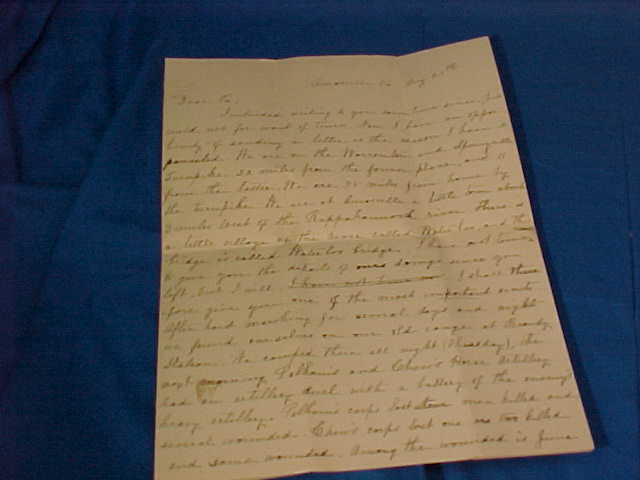 Amosville Va Aug 25th
Dear Pa;
I intended writing to you some time since, but
could not for want of time. Now I have an oppor
tunity of sending a letter is the reason I have
pencated. We are on the Warrenton and Sperryville
Turnpike 22 miles from the former place, and 11
from the latter. We are 75 miles from home by
the turnpike. We are at Amosville a little town about
3 miles West of the Rappahannock river. There is
a little village up the river called Waterloo and the
bridge is called Waterloo bridge. I have not time
to give you the details of ours doings since you
left, but I will, I have not time now. I shall there
fore give you one of the most important events
After hard marching for several days and nights
we found ourselves on our old range at Brandy
Station. We camped there all night (Thursday), the
next morning Pelham's and Chew's Horse Artillery
had an artillery duel with a battery of the enemy's
heavy artillery. Pelham's corps lost three men killed and
several wounded. Chew's corps lost one or two killed
and some wounded. Among the wounded is